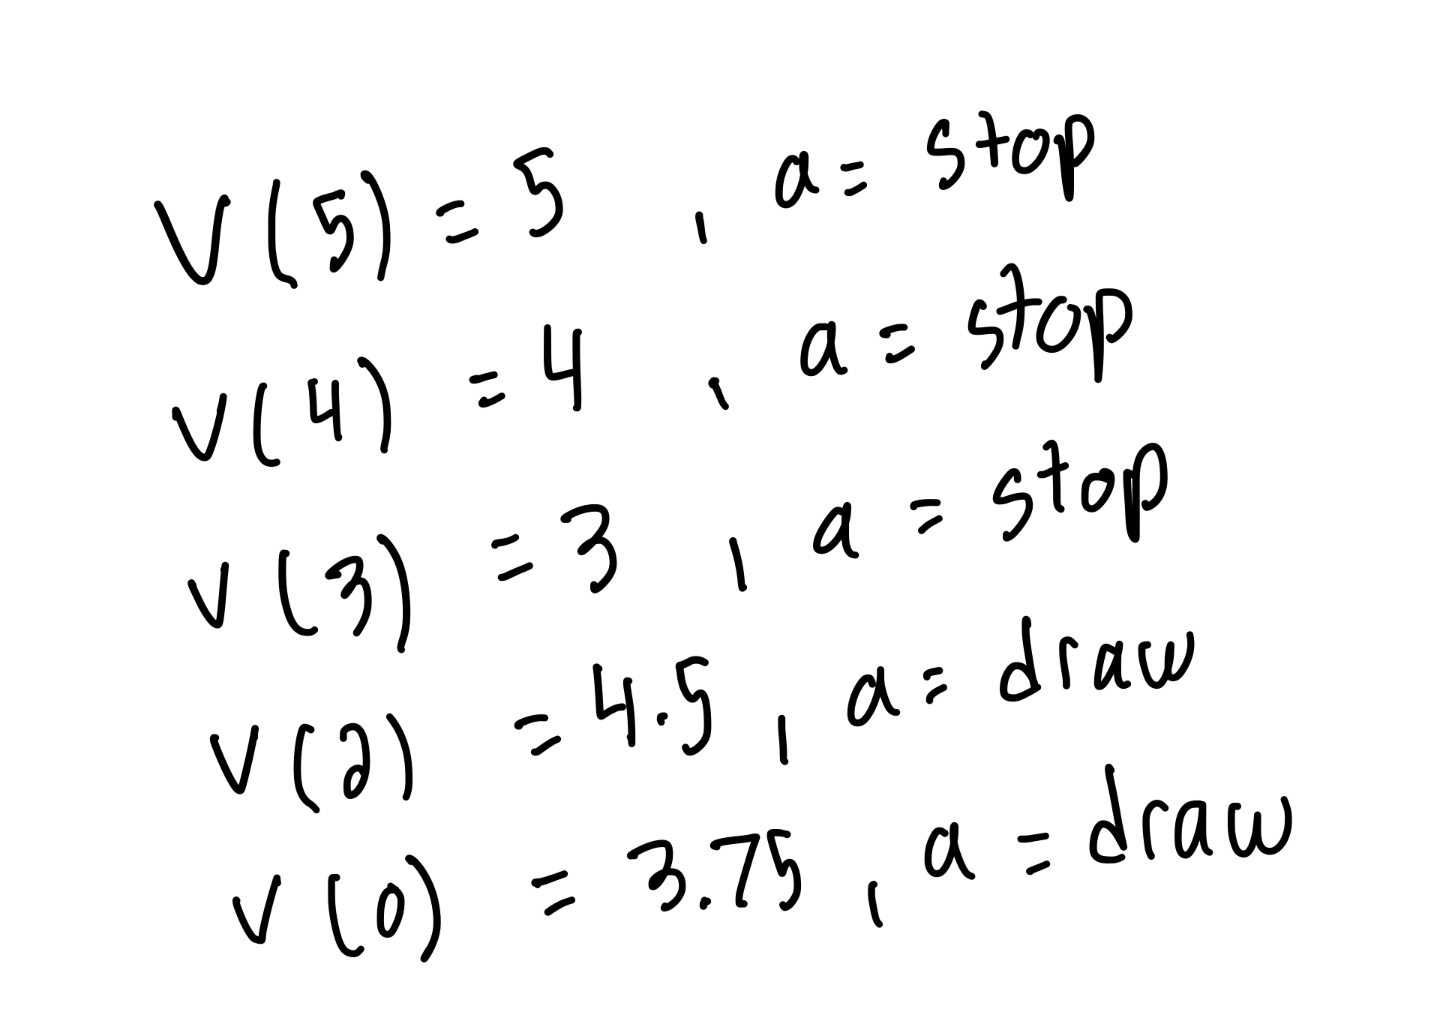 V(5) = 5 , a = stop
V(4) = 4 , a = stop
V(3) = 3 , a = stop
V(2) = 4.5 , a = draw
V(0) = 3.75 , a = draw